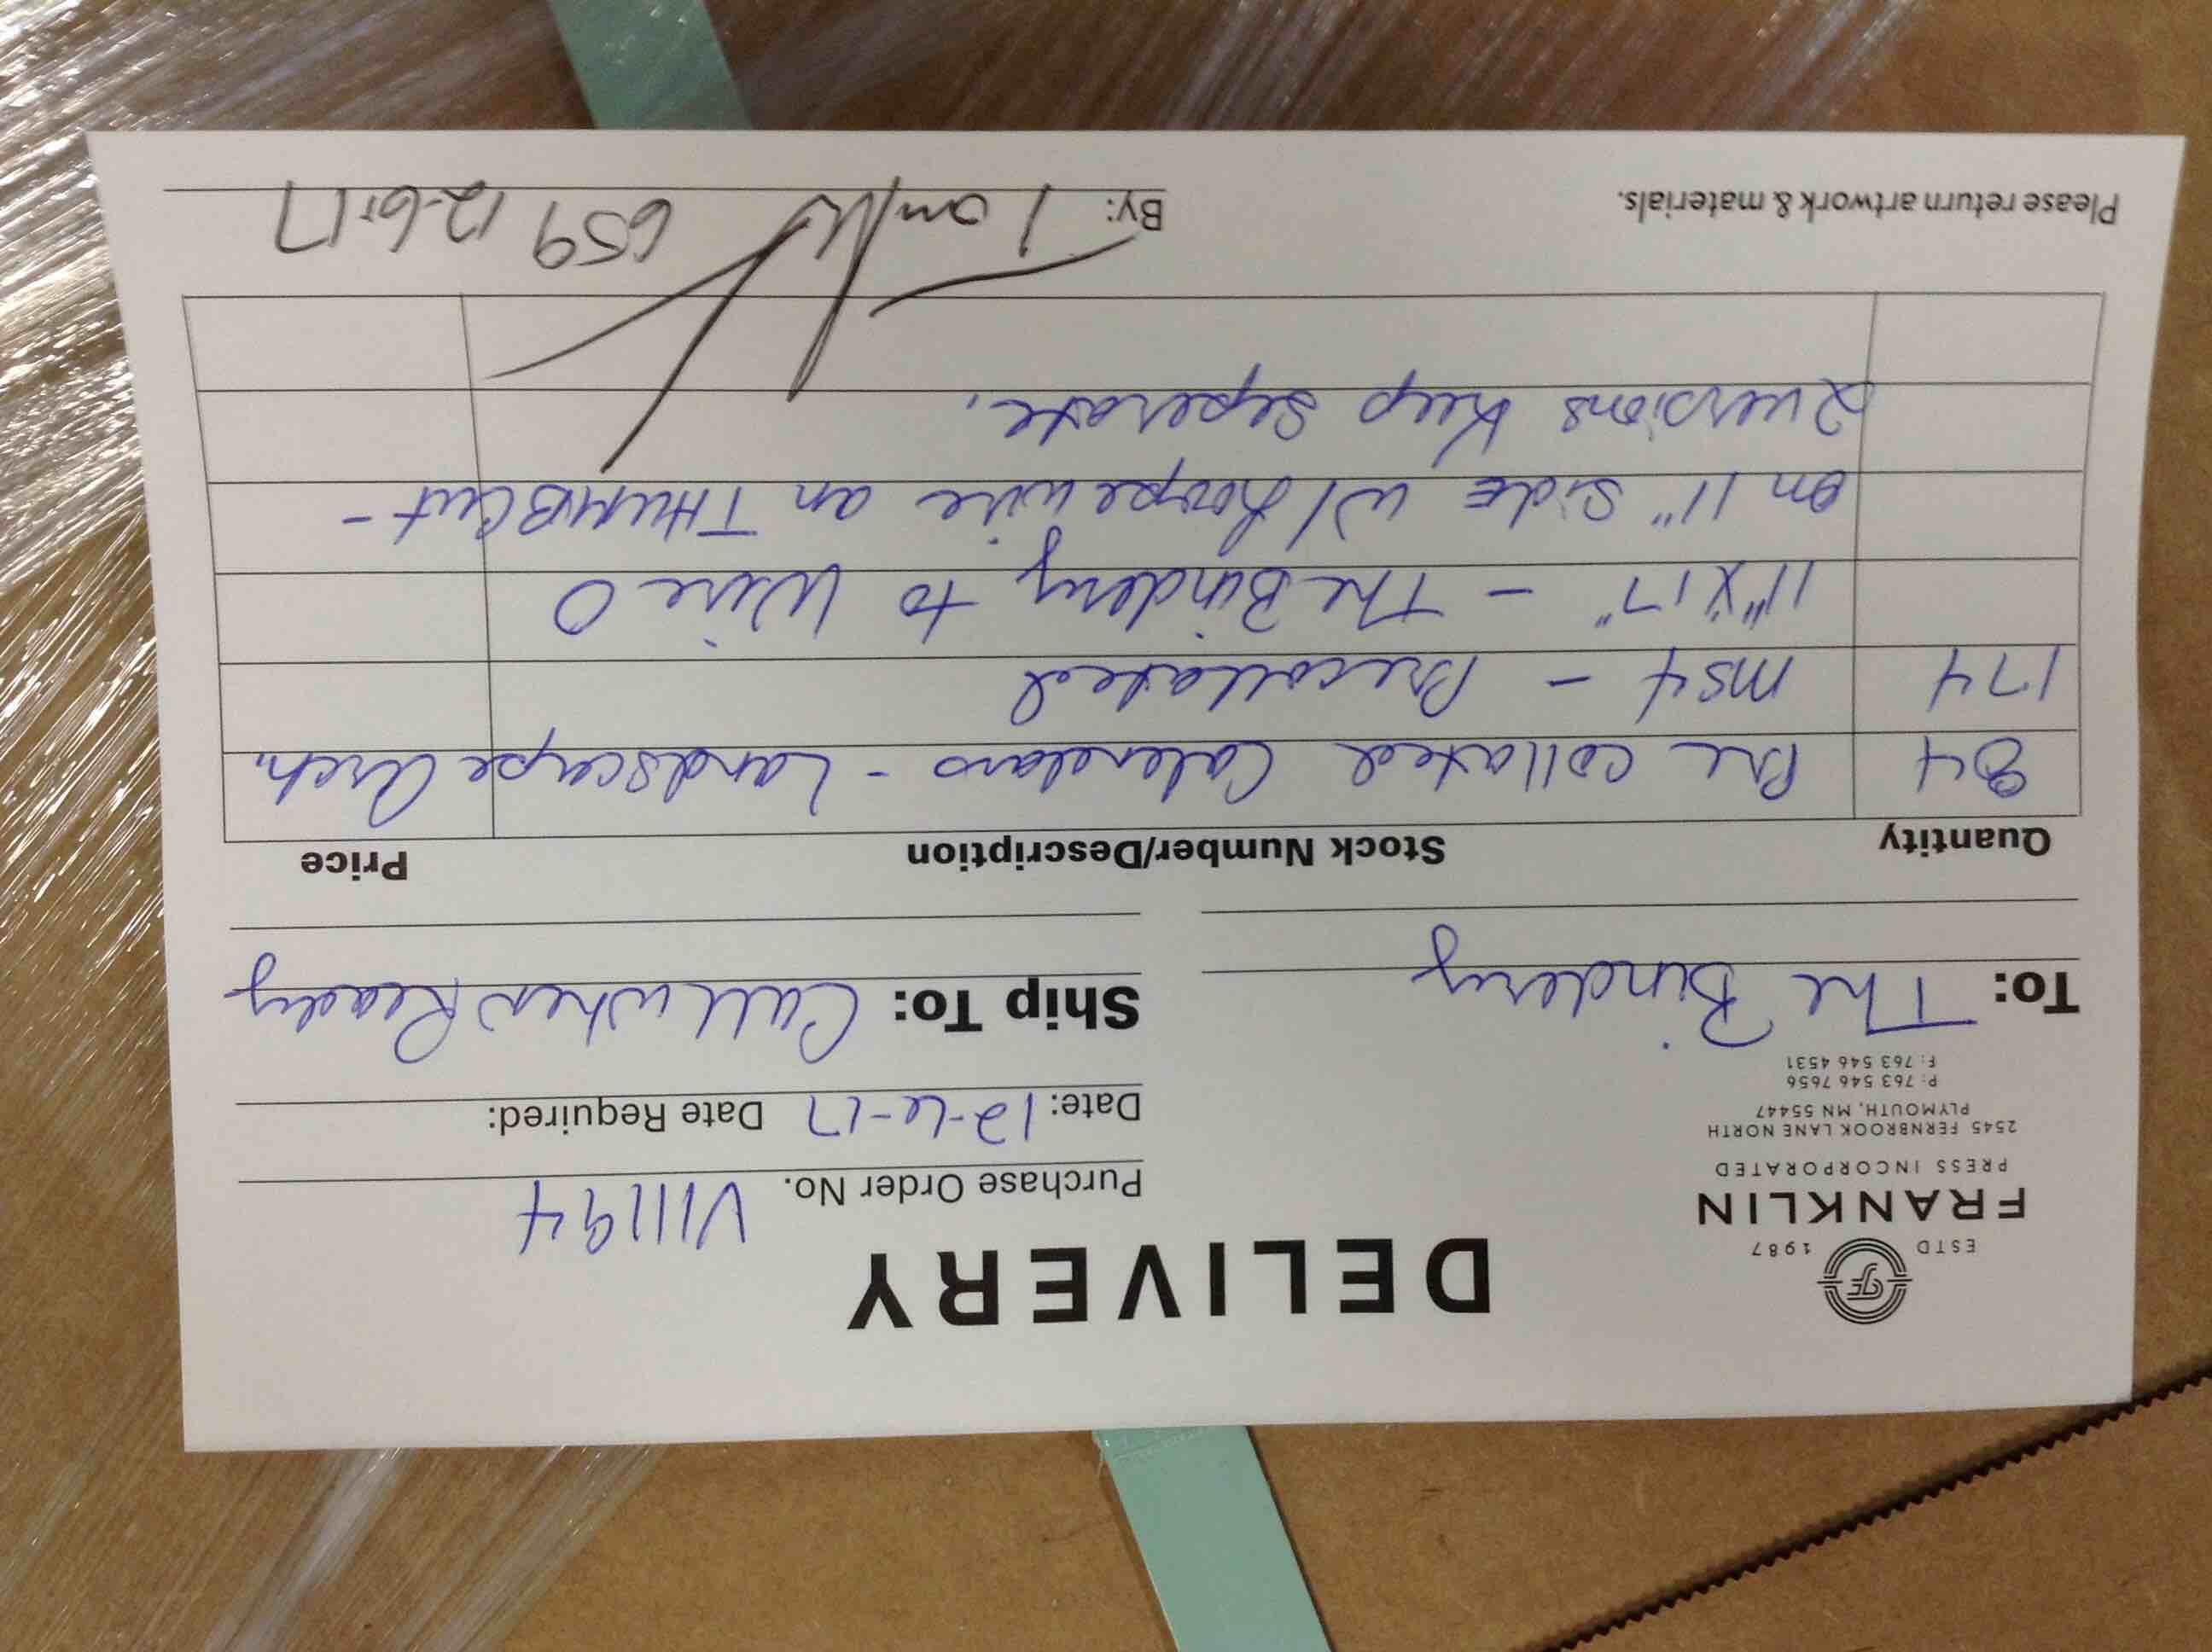 ESTD 1987
FRANKLIN
PRESS INCORPORATED
2545 FERNBROOK LANE NORTH
PLYMOUTH, MN 55447
P: 763 546 7656
F: 763 546 4531
DELIVERY
Purchase Order No. V111194
Date: 12-6-17 Date Required:
To: The Bindery
Ship To: Call when Ready
Quantity Stock Number/Description Price
84 Pre collated Calendars - Landscape Arch.
174 MS4 - Precollated
11" X 17" - The Bindery to Wire O
on 11" Side w/ Loope wire an THUMBCut -
2 versions Keep Seperate.
Please return artwork & materials.
By: Tom 659 12-6-17